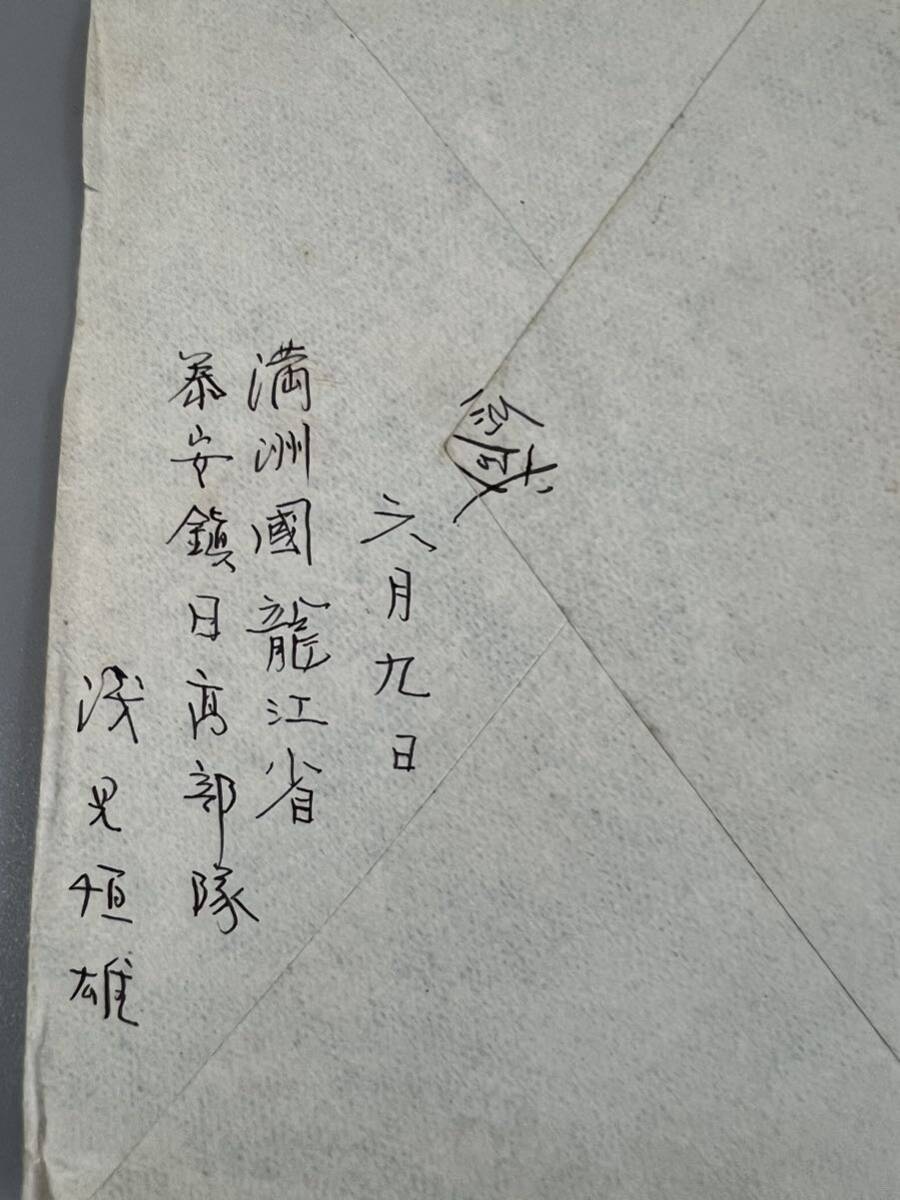 緘
六月九日
満洲國龍江省
泰安鎮日高部隊
浅見恒雄